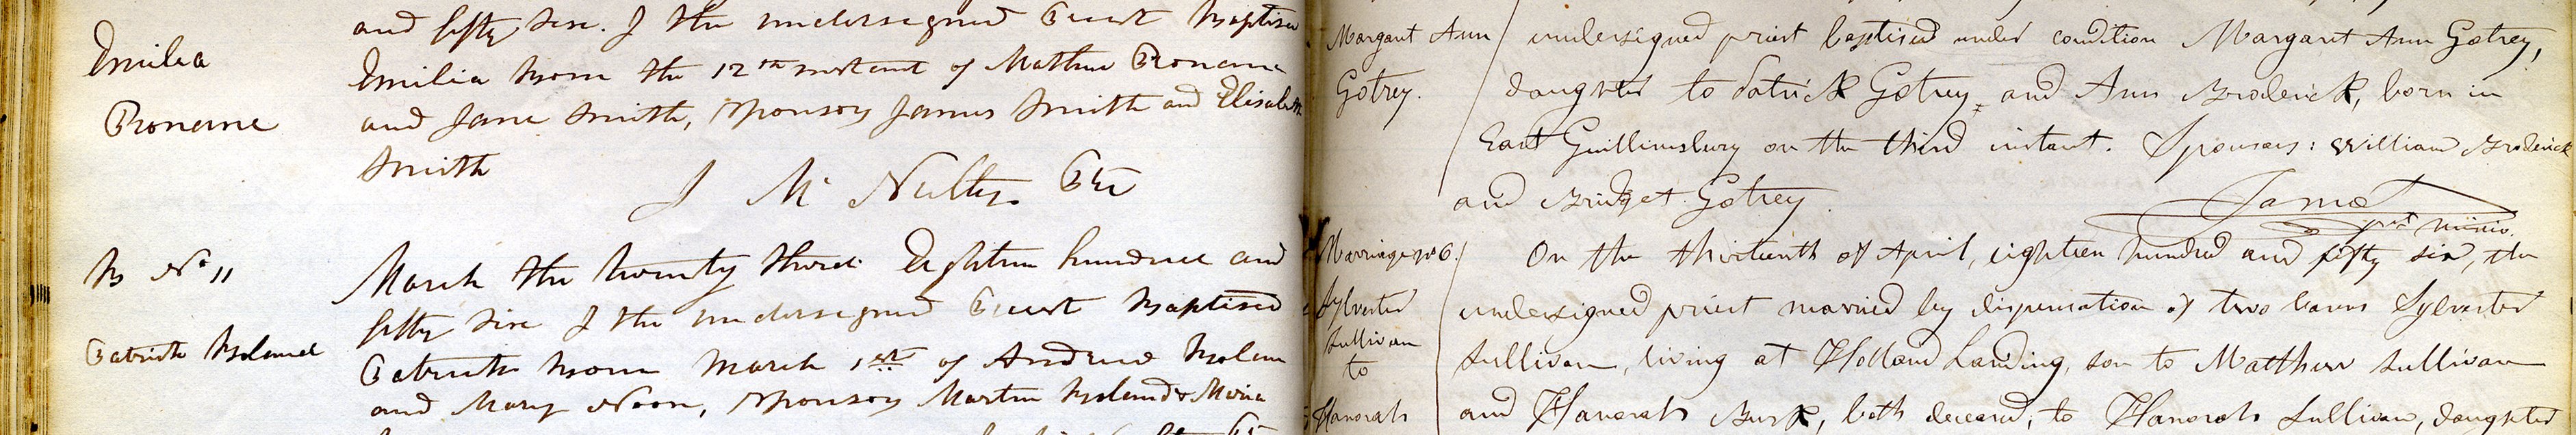 and fifty sixe. I the undersigned Priest baptised
Emilia
Emilia born the 12th instant of Mathew Proname
Proname
and Jane Smith, Sponsors James Smith and Elisabeth
Smith
J Mc Nulty Pst
B No 11
March the twenty third Eighteen hundred and
fifty sixe I the undersigned Priest baptised
Patrick Boland
Patrick born March 1st of Andrew Bolan
and Mary Noon, Sponsors Martin Boland & Maria
Margaret Ann
undersigned priest baptised under condition Margaret Ann Gotrey,
Gotrey.
daughter to Patrick Gotrey and Ann Broderick, born in
East Guillimsbury on the third instant. Sponsors: William Broderick
and Bridget Gotrey.
Marriage No 6.
On the thirteenth of April, eighteen hundred and fifty six, the
Sylvester
undersigned priest married by dispensation of two banns Sylvester
Sullivan
to
Sullivan, living at Holland Landing, son to Matthew Sullivan
Hanorah
and Hanorah Burk, both deceased, to Hanorah Sullivan, daughter